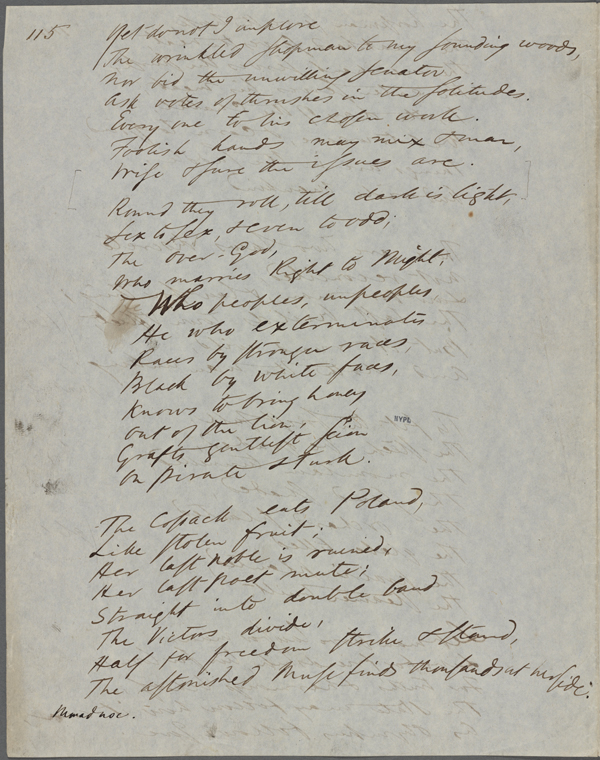 115
Yet do not I implore
The wrinkled shopman to my sounding woods,
Nor bid the unwilling senator
Ask votes of thrushes in the solitudes.
Every one to his chosen work.
Foolish hands may mix & mar,
Wise & sure the issues are.
Round they roll, till dark is light,
Sex to sex, & even to odd;
The over-God,
Who marries Right to Might,
Who peoples, unpeoples
He who exterminates
Races by stronger races,
Black by white faces,
Knows to bring honey
Out of the lion,
NYPL
Grafts gentlest scion
On Pirate & Turk.
The Cossack eats Poland,
Like stolen fruit;
Her last noble is ruined,
Her last Poet mute;
Straight into double band
The Victors divide,
Half for freedom strike & stand,
The astonished Muse finds thousands at her side.